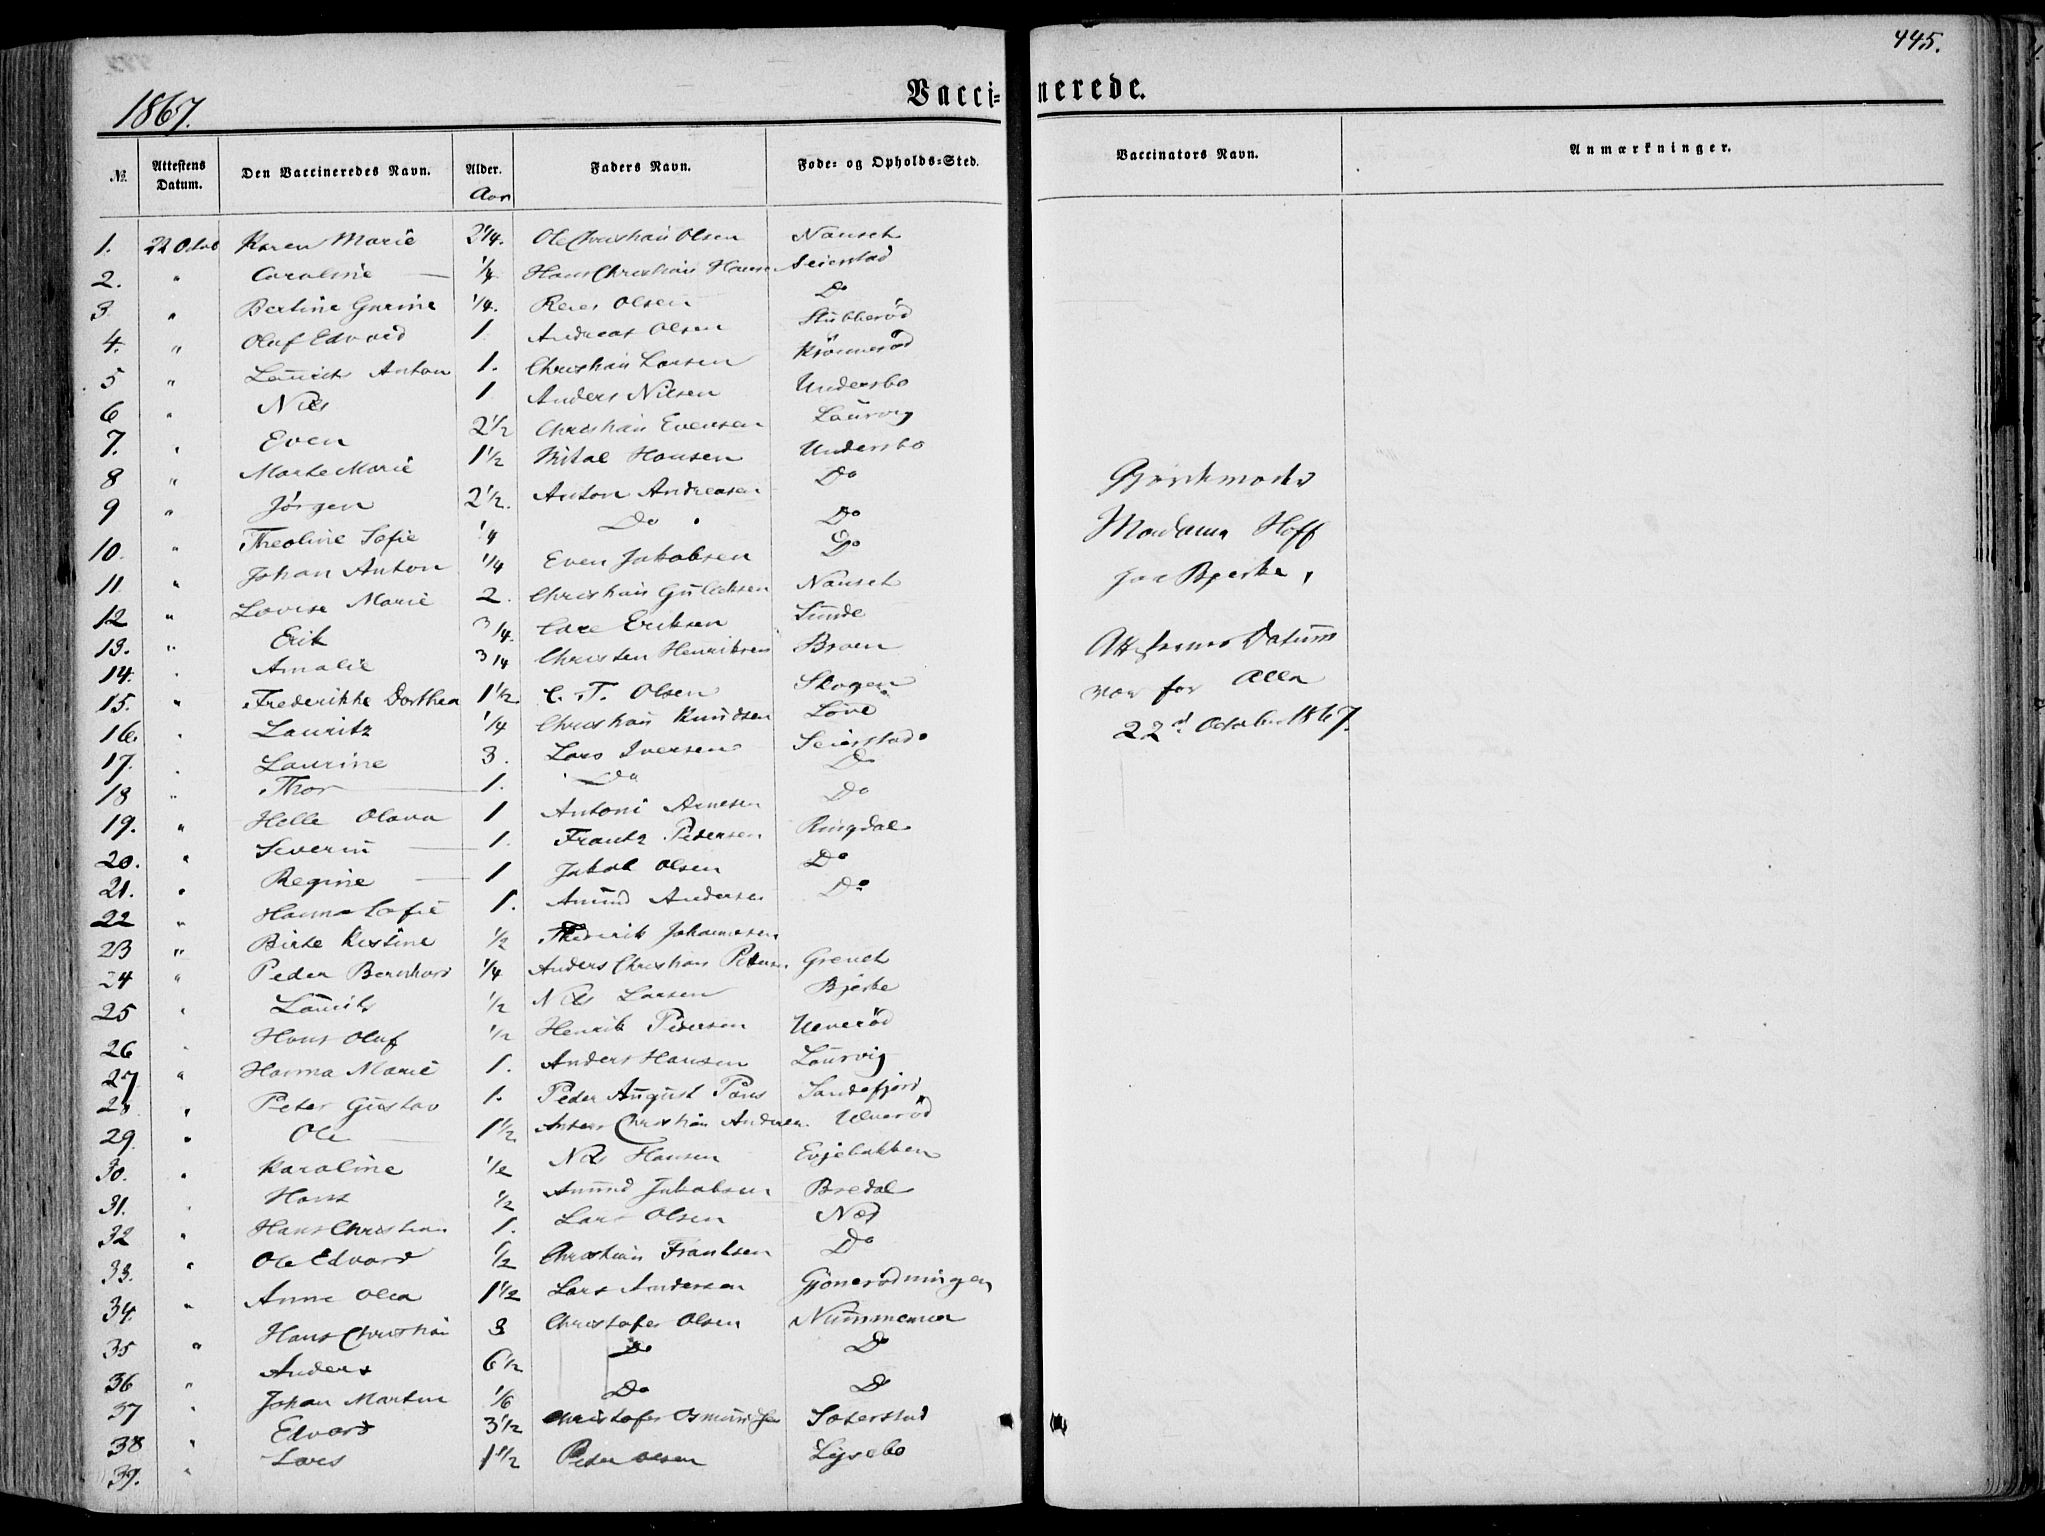 445.
1867.
Vacci=nerede.
№ Attestens Datum. Den Vaccineredes Navn. Alder. Faders Navn. Føde= og Opholds=Sted. Vaccinators Navn. Anmærkninger.
Aar
1. 22 Octob Karen Marie 2 1/4. Ole Christian Olsen Nauset
2. " Caroline 1/4 Hans Christian Hansen Seierstad
3 " Bertine Gurine 1/4. Olsen Do
4. " Oluf Edvard 1. Andreas Olsen Stubberöd
5 " Laurits Anton 1. Christian Larsen
6 " Nils 1. Anders Nilsen Undersbo
7. " Even 2 1/2 Christian Evensen Laurvig
8 " Marte Marie 1 1/2 Mikal Hansen Undersbo
9 " Jörgen 2 1/2. Anton Andreasen Do
10. " Theoline Sofie 1/4 Do Do
11 " Johan Anton 1/4 Even Jakobsen Do
12 " Lovise Marie 2. Christian Gulliksen Nauset
13. " Erik 3/4. Eriksen Sunde
14. " Amalie 3/4 Christen Henriksen Broen
15. " Frederikke Dorthea 1 1/2 C. T. Olsen Skogen
16. " Lauritz 1/4 Christian Knudsen Löve
17. " Laurine 3. Lars Iversen Seierstad
18 " Thor 1. Do Do
19. " Helle Olava 1 Antoni Arnesen Do
20. " Severin 1. Frantz Pedersen Ringdal
21. " Regine 1 Jakob Olsen Do
22 " Hanna Sofie 1. Amund Andersen Do
23 " Birte Kistine 1/2 Frederik Johannesen
24 " Peder Bernhard 1/4 Anders Christian Petersen Grevet
25 " Laurits 1/2 Nils Larsen Bjerke
26 " Hans Oluf 1/2 Henrik Pedersen Ulveröd
27 " Hanna Marie 1. Anders Hansen Laurvig
28 " Peter Gustav 1. Peder August Sandefjord
29. " Ole 1 1/2 Anders Christian Andersen Ulveröd
30. " Karoline 1/2 Nils Hansen Evjebakken
31. " Hans 1/2 Amund Jakobsen Bredal
32 " Hans Christian 1. Lars Olsen Nes
33. " Ole Edvard 1/2 Christian Frantsen Do
34. " Anne Olea 1 1/2 Lars Andersen Gjonerödningen
35 " Hans Christian 3 Christofer Olsen Nummemoen
36 " Anders 6 1/2 Do Do
37 " Johan Martin 1/6 Do Do
38 " Edvard 3 1/2 Christofer Osmundsen Soterstad
39. " Lars 1 1/2 Peder Olsen Lysebo
Gjordemoder
Madame Hoff
paa Bjerke,
Attestens Datum
var for Alle
22d October 1867.